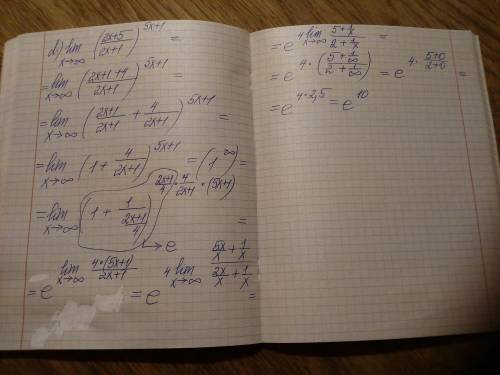 d) lim x→∞ ((2x+5)/(2x+1))^(5x+1) =
= lim x→∞ ((2x+1+4)/(2x+1))^(5x+1) =
= lim x→∞ ((2x+1)/(2x+1) + 4/(2x+1))^(5x+1) =
= lim x→∞ (1 + 4/(2x+1))^(5x+1) = (1^∞) =
= lim x→∞ (1 + 1/((2x+1)/4))^((2x+1)/4 · 4/(2x+1) · (5x+1)) =
→ e
= e^(lim x→∞ (4·(5x+1))/(2x+1)) = e^(4 lim x→∞ (5x/x + 1/x)/(2x/x + 1/x)) =
= e^(4 lim x→∞ (5+1/x)/(2+1/x)) =
= e^(4·((5+1/∞)/(2+1/∞))) = e^(4·(5+0)/(2+0)) =
= e^(4·2,5) = e^10